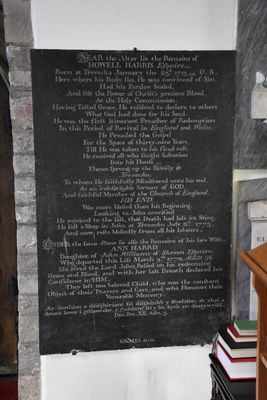 NEAR the Altar lie the Remains of
HOWELL HARRIS Esquire,
Born at Trevecka January the 23d 1713/14 O. S.
Here where his Body lies, He was convinced of Sin,
Had his Pardon Sealed,
And felt the Power of Christ's precious Blood,
At the Holy Communion.
Having Tasted Grace, He resolved to declare to others
What God had done for his Soul.
He was the first itinerant Preacher of Redemption
In this Period of Revival in England and Wales.
He Preached the Gospel
For the Space of thirty-nine Years,
Till He was taken to his final rest.
He received all who sought Salvation
Into his House.
Thence sprung up the Family at
Trevecka,
To whom He faithfully Ministered unto his end,
As an indefatigable Servant of GOD,
And faithful Member of the Church of England.
HIS END
Was more blessed than his Beginning.
Looking to Jesus crucified
He rejoiced to the last, that Death had lost its Sting.
He fell a Sleep in Jesus at Trevecka July 21st 1773,
And now rests blessedly from all his labours.
UNDER the same Stone lie also the Remains of his late Wife,
ANN HARRIS
Daughter of John Williams of Skreen Esquire
Who departed this Life March 9th 1770, AGED 58.
She loved the Lord Jesus, Relied on his redeeming
Grace and Blood, and with her last Breath declared her
Confidence in HIM.
They left one beloved Child, who was the constant
Object of their Prayers and Care, and who Honours their
Venerable Memory.
Dan. Pen. XII. Adn. 3.